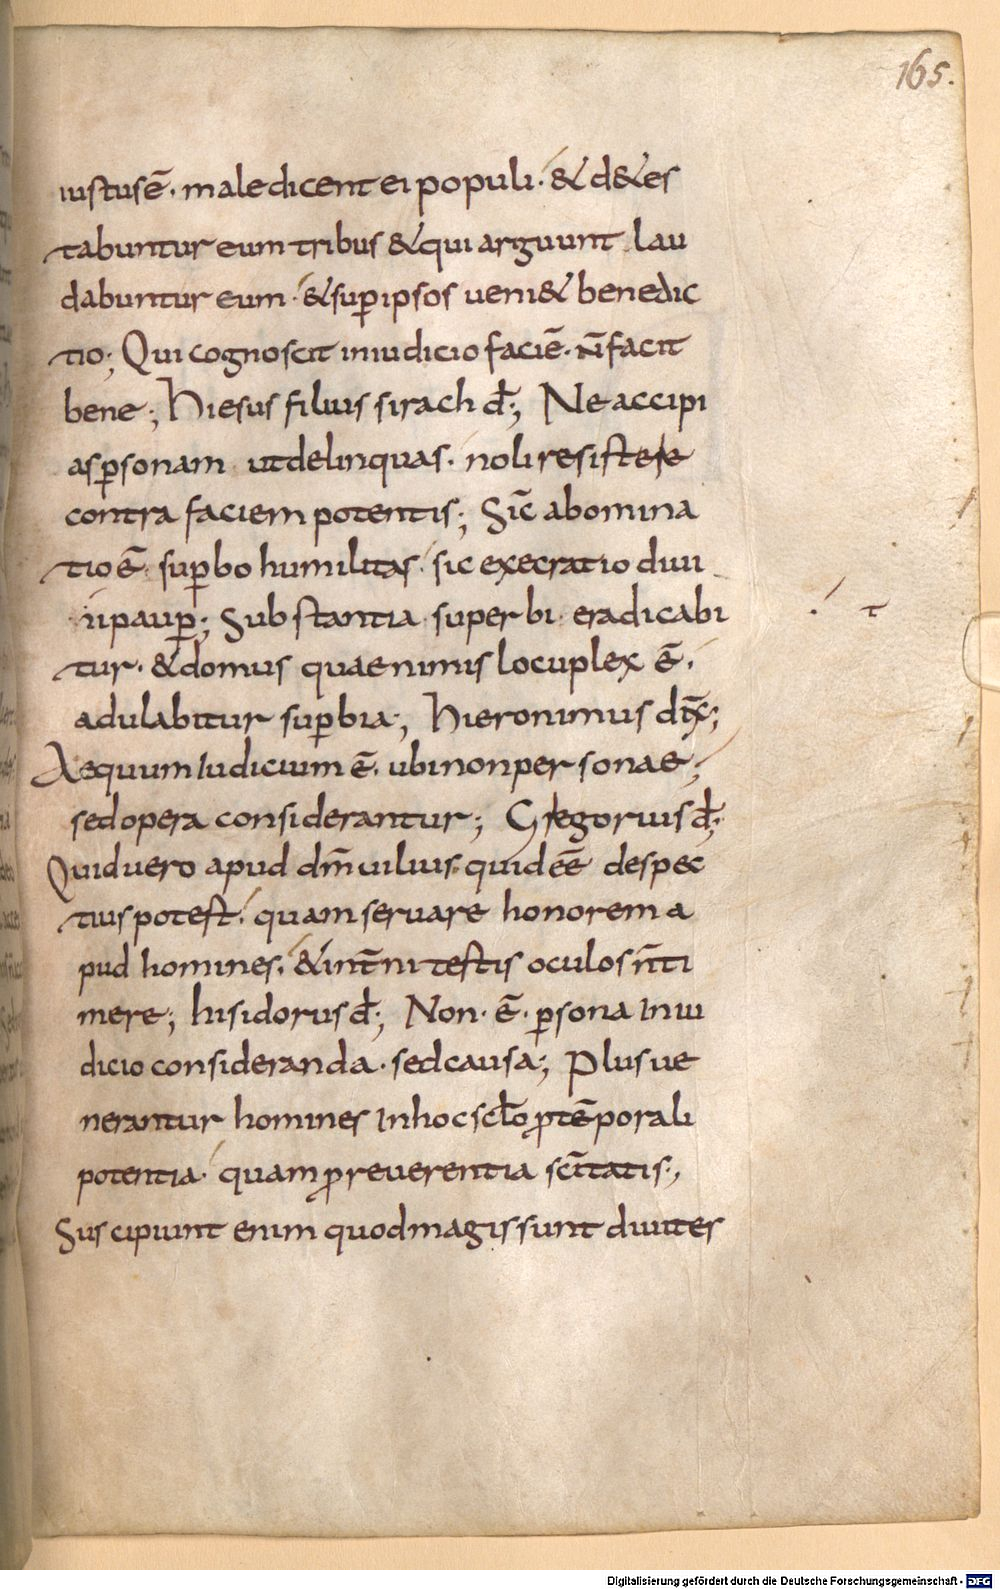 165.
iustus ē. maledicent ei populi. & d&es
tabuntur eum tribus & qui arguunt lau
dabuntur eum. & sup̱ ipsos ueni& benedic
tio; Qui cognoscit in iudicio faciē. n̄ facit
bene; Hiesus filius sirach dt̄; Ne accipi
as p̱sonam ut delinquas. noli resistere
contra faciem potentis; Sic̄ abomina
tio ē sup̱bo humilitas. sic execratio diui
ti paup̱; Substantia superbi eradicabi
tur. & domus quae nimis locuplex ē.
adulabitur sup̱bia; Hieronimus dix̄;
Aequum iudicium ē. ubi non personae;
sed opera considerantur; Gregorius dt̄;
Quid uero apud dm̄ uilius. quid eē despec
tius potest. quam seruare honorem a
pud homines. & int̄ni testis oculos n̄ ti
mere; hisidorus dt̄; Non. ē. p̱sona in iu
dicio consideranda. sed causa; Plus ue
nerantur homines in hoc sclo̅ ꝓ tēporali
potentia. quam ꝓ reuerentia sc̄itatis;
Suscipiunt enim quod magis sunt diuites
Digitalisierung gefördert durch die Deutsche Forschungsgemeinschaft - DFG